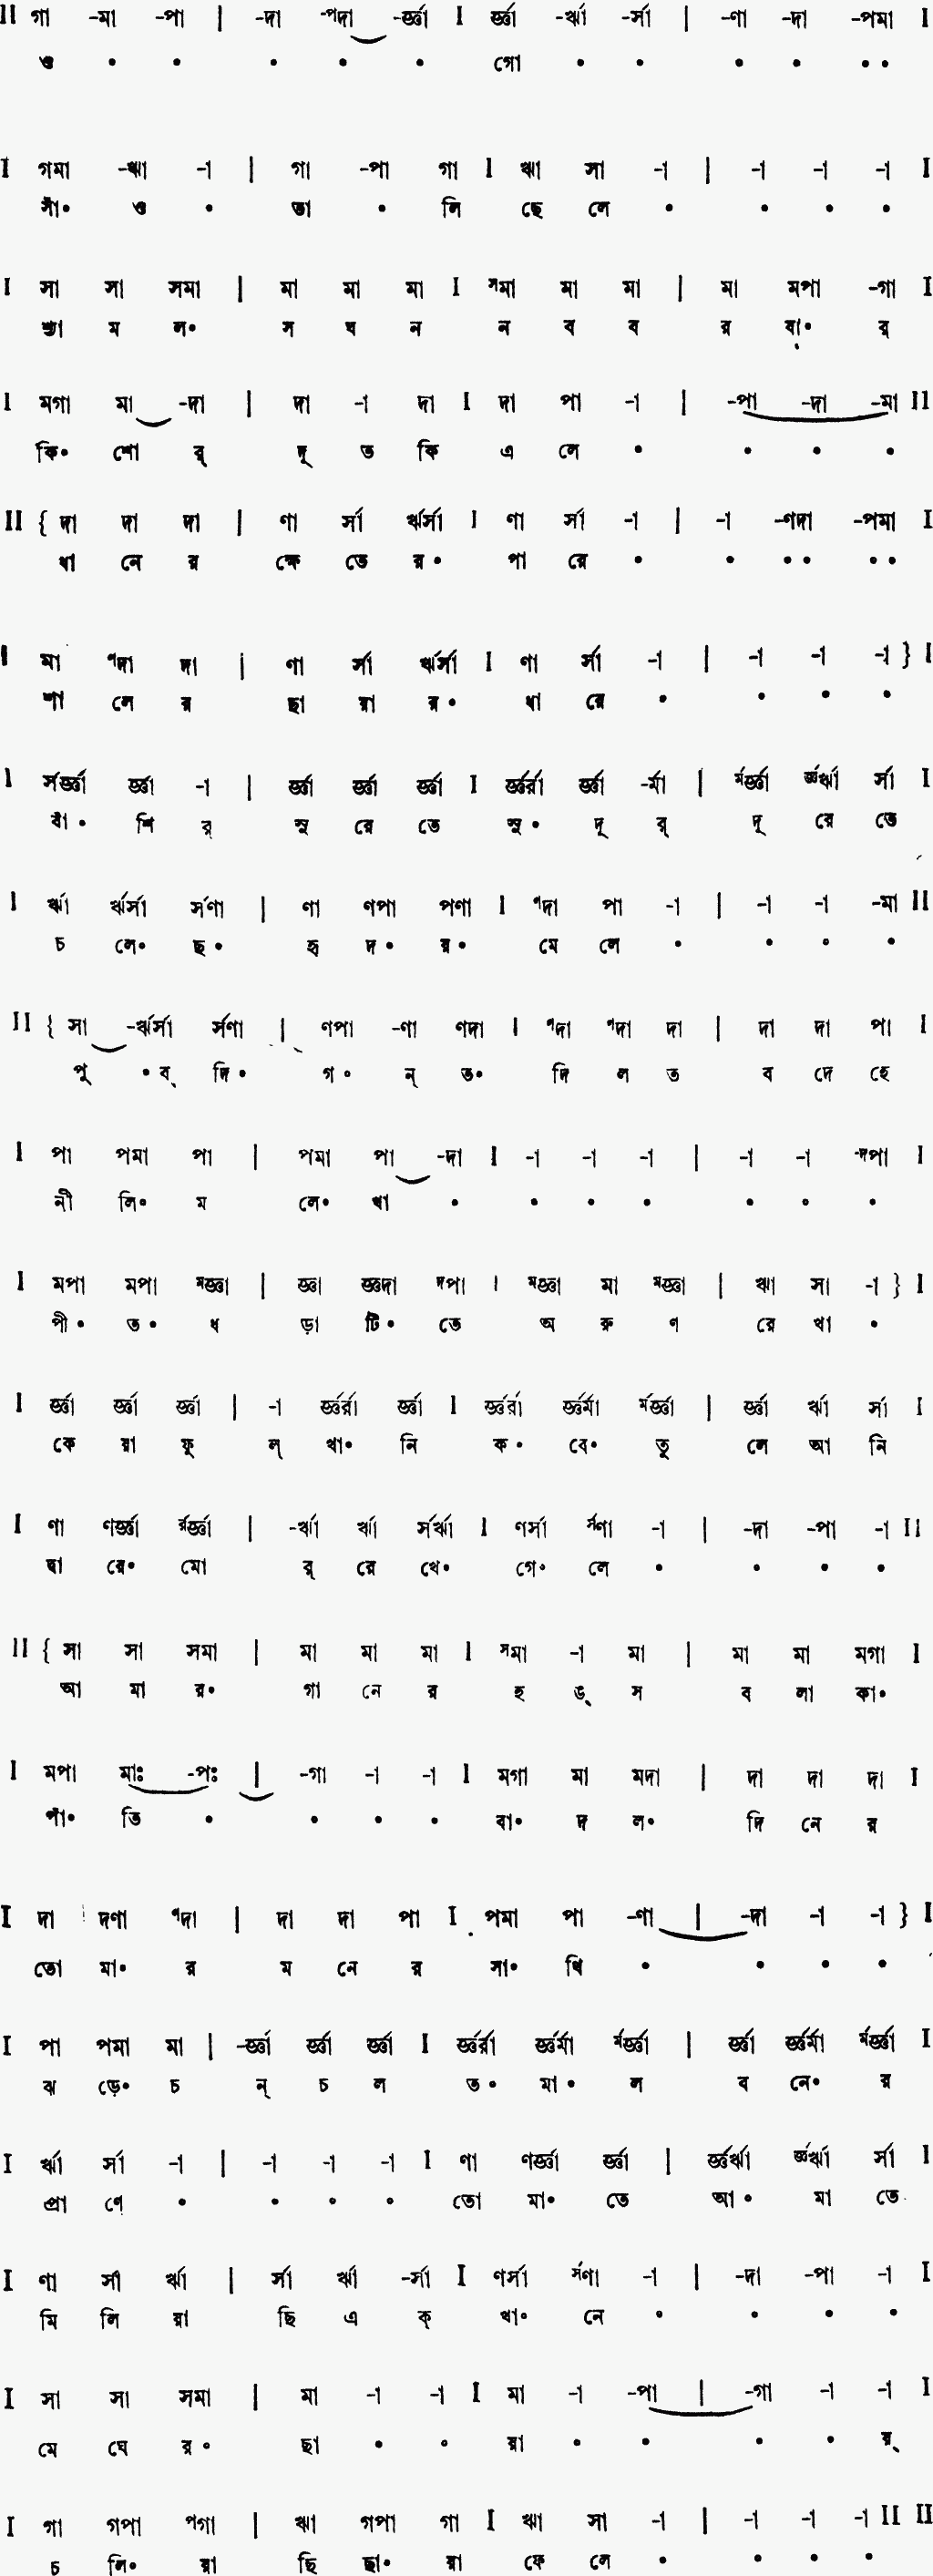 II গা -মা -পা | -দা -পদা -র্জ্ঞা I র্জ্ঞা -র্ঋা -র্সা | -ণা -দা -পমা I
ও • • • • • গো • • • • ••
I গমা -ঋা -া | গা -পা গা I ঋা সা -া | -া -া -া I
সাঁ• ও • তা • লি ছে লে • • • •
I সা সা সমা | মা মা মা I সমা মা মা | মা মপা -গা I
শ্যা ম ল• স ঘ ন ন ব ব র ষা• র্
I মগা মা -দা | দা -া দা I দা পা -া | -পা -দা -মা II
কি• শো র্ দূ ত কি এ লে • • • •
II { দা দা দা | ণা র্সা র্ঋর্সা I ণা র্সা -া | -া -ণদা -পমা I
ধা নে র ক্ষে তে র• পা রে • • •• ••
I মা ণদা দা | ণা র্সা র্ঋর্সা I ণা র্সা -া | -া -া -া } I
শা লে র ছা য়া র• ধা রে • • • •
I র্সর্জ্ঞা র্জ্ঞা -া | র্জ্ঞা র্জ্ঞা র্জ্ঞা I র্জ্ঞর্রা র্জ্ঞা -র্মা | র্মর্জ্ঞা র্জ্ঞর্ঋা র্সা I
বাঁ• শি র্ সু রে তে সু• দূ র্ দূ রে তে
I র্ঋা র্ঋর্সা র্সণা | ণা ণপা পণা I ণদা পা -া | -া -া -মা II
চ লে• ছ• হৃ দ• য়• মে লে • • • •
II { সা -র্ঋর্সা র্সণা | ণপা -ণা ণদা I ণদা ণদা দা | দা দা পা I
পূ •ব্ দি• গ• ন্ ত• দি ল ত ব দে হে
I পা পমা পা | পমা পা -দা I -া -া -া | -া -া -দপা I
নী লি• ম লে• খা • • • • • • •
I মপা মপা মজ্ঞা | জ্ঞা জ্ঞদা দপা I মজ্ঞা মা মজ্ঞা | ঋা সা -া } I
পী• ত• ধ ড়া টি• তে অ রু ণ রে খা •
I র্জ্ঞা র্জ্ঞা র্জ্ঞা | -া র্জ্ঞর্রা র্জ্ঞা I র্জ্ঞর্রা র্জ্ঞর্মা র্মর্জ্ঞা | র্জ্ঞা র্ঋা র্সা I
কে য়া ফু ল্ খা• নি ক• বে• তু লে আ নি
I ণা ণর্জ্ঞা র্রর্জ্ঞা | -র্ঋা র্ঋা র্সর্ঋা I ণর্সা র্সণা -া | -দা -পা -া II
দ্বা রে• মো র্ রে খে• গে• লে • • • •
II { সা সা সমা | মা মা মা I সমা -া মা | মা মা মগা I
আ মা র• গা নে র হ ঙ্ স ব লা কা•
I মপা মাঃ -পঃ | -গা -া -া I মগা মা মদা | দা দা দা I
পাঁ• তি • • • • বা• দ ল• দি নে র
I দা দণা ণদা | দা দা পা I পমা পা -ণা | -দা -া -া } I
তো মা• র ম নে র সা• থি • • • •
I পা পমা মা | -র্জ্ঞা র্জ্ঞা র্জ্ঞা I র্জ্ঞর্রা র্জ্ঞর্মা র্মর্জ্ঞা | র্জ্ঞা র্জ্ঞর্মা র্মর্জ্ঞা I
ঝ ড়ে• চ ন্ চ ল ত• মা• ল ব নে• র
I র্ঋা র্সা -া | -া -া -া I ণা ণর্জ্ঞা র্জ্ঞা | র্জ্ঞর্ঋা র্জ্ঞর্ঋা র্সা I
প্রা ণে • • • • তো মা• তে আ• মা তে
I ণা র্সা র্ঋা | র্সা র্ঋা -র্সা I ণর্সা র্সণা -া | -দা -পা -া I
মি লি য়া ছি এ ক্ খা• নে • • • •
I সা সা সমা | মা -া -া I মা -া -পা | -গা -া -া I
মে ঘে র• ছা • • য়া • • • • য়্
I গা গপা পগা | ঋা গপা গা I ঋা সা -া | -া -া -া II II
চ লি• য়া ছি ছা• য়া ফে লে • • • •